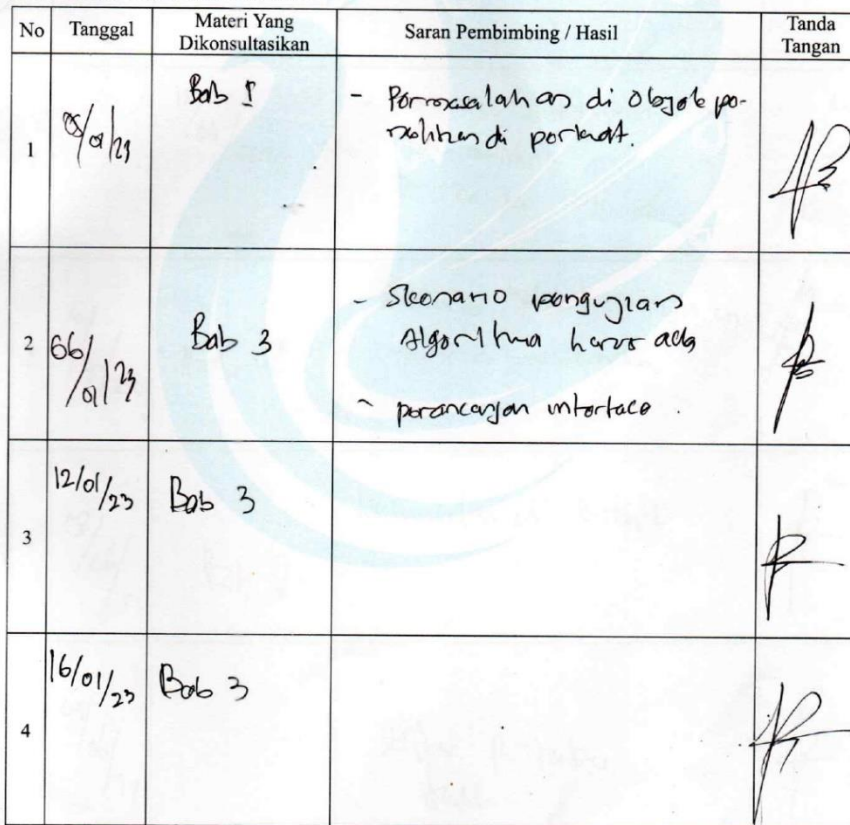 No Tanggal Materi Yang Dikonsultasikan Saran Pembimbing / Hasil Tanda Tangan
1 Bab 1 - Permasalahan di Objek pe-
nelitian di perkuat.
2 06/01/23 Bab 3 - Skenario pengujian
Algoritma harus ada
- perancangan interface.
3 12/01/23 Bab 3
4 16/01/23 Bab 3